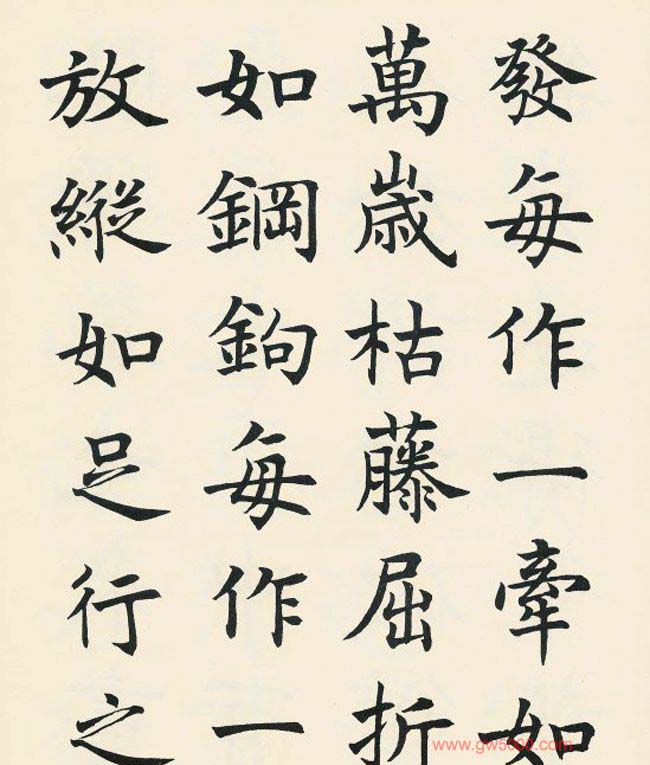 發每作一牽如
萬歲枯藤屈折
如鋼鉤每作一
放縱如足行之
www.gw5000.com